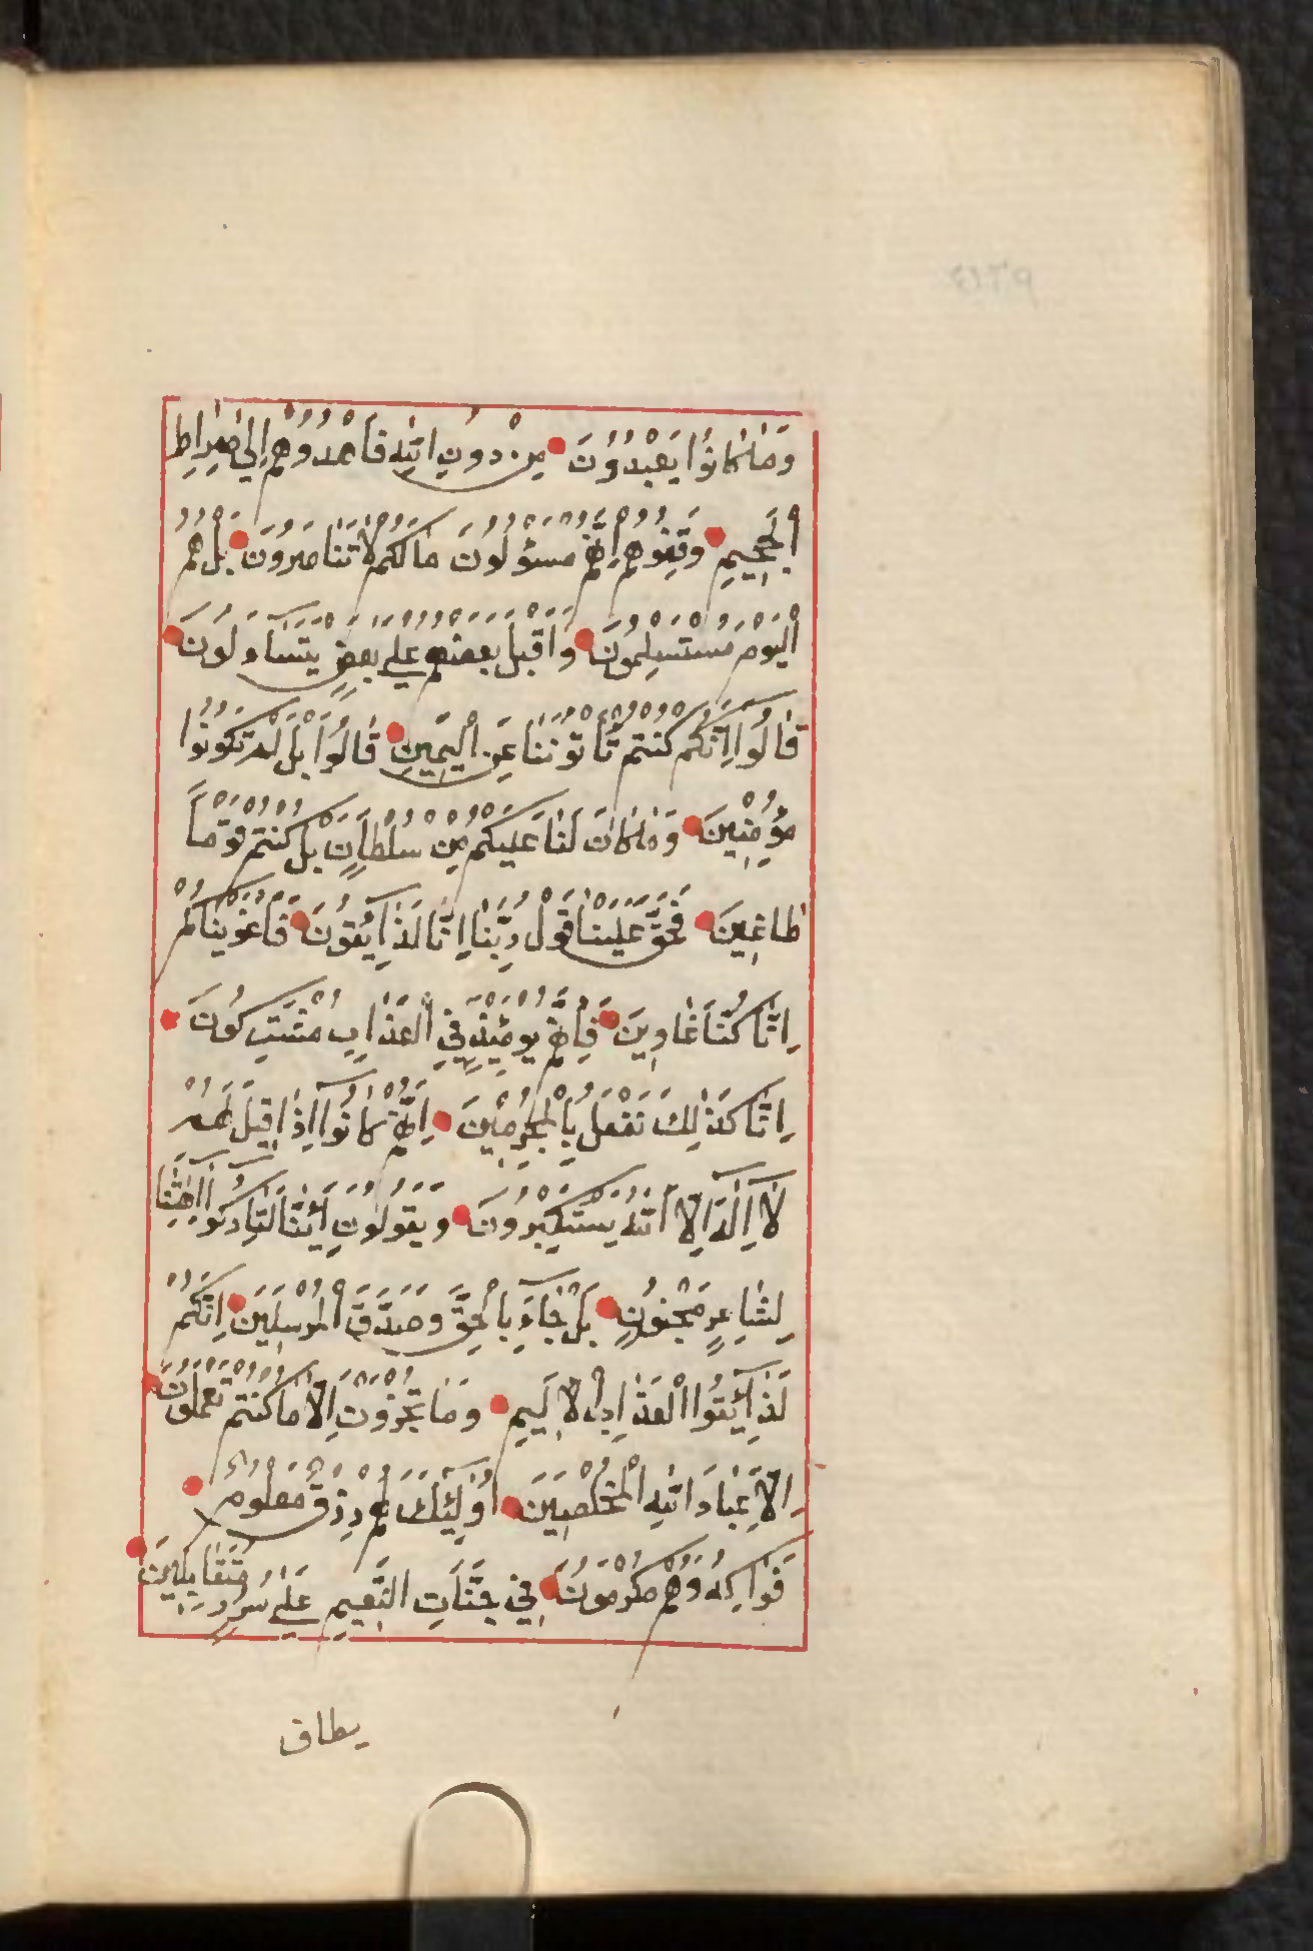 وَمَا كَانُوا يَعْبُدُونَ مِنْ دُونِ اللهِ فَاهْدُوهُمْ اِلىٰ صِرَاطِ
الْجَحِيمِ وَقِفُوهُمْ اِنَّهُمْ مَسْؤُلُونَ مَا لَكُمْ لَا تَنَاصَرُونَ بَلْ هُمُ
الْيَوْمَ مُسْتَسْلِمُونَ وَاَقْبَلَ بَعْضُهُمْ عَلىٰ بَعْضٍ يَتَسَآءَلُونَ
قَالُوا اِنَّكُمْ كُنْتُمْ تَأْتُونَنَا عَنِ الْيَمِينِ قَالُوا بَلْ لَمْ تَكُونُوا
مُؤْمِنِينَ وَمَا كَانَ لَنَا عَلَيْكُمْ مِنْ سُلْطَانٍ بَلْ كُنْتُمْ قَوْمًا
طَاغِينَ فَحَقَّ عَلَيْنَا قَوْلُ رَبِّنَا اِنَّا لَذَآئِقُونَ فَاَغْوَيْنَاكُمْ
اِنَّا كُنَّا غَاوِينَ فَاِنَّهُمْ يَوْمَئِذٍ فِي الْعَذَابِ مُشْتَرِكُونَ
اِنَّا كَذٰلِكَ نَفْعَلُ بِالْمُجْرِمِينَ اِنَّهُمْ كَانُوآ اِذَا قِيلَ لَهُمْ
لَآ اِلٰهَ اِلَّا اللهُ يَسْتَكْبِرُونَ وَيَقُولُونَ اَئِنَّا لَتَارِكُوآ اٰلِهَتِنَا
لِشَاعِرٍ مَجْنُونٍ بَلْ جَآءَ بِالْحَقِّ وَصَدَّقَ الْمُرْسَلِينَ اِنَّكُمْ
لَذَآئِقُوا الْعَذَابِ الْاَلِيمِ وَمَا تُجْزَوْنَ اِلَّا مَا كُنْتُمْ تَعْمَلُونَ
اِلَّا عِبَادَ اللهِ الْمُخْلَصِينَ اُولٰٓئِكَ لَهُمْ رِزْقٌ مَعْلُومٌ
فَوَاكِهُ وَهُمْ مُكْرَمُونَ فِي جَنَّاتِ النَّعِيمِ عَلىٰ سُرُرٍ مُتَقَابِلِينَ
يطاف